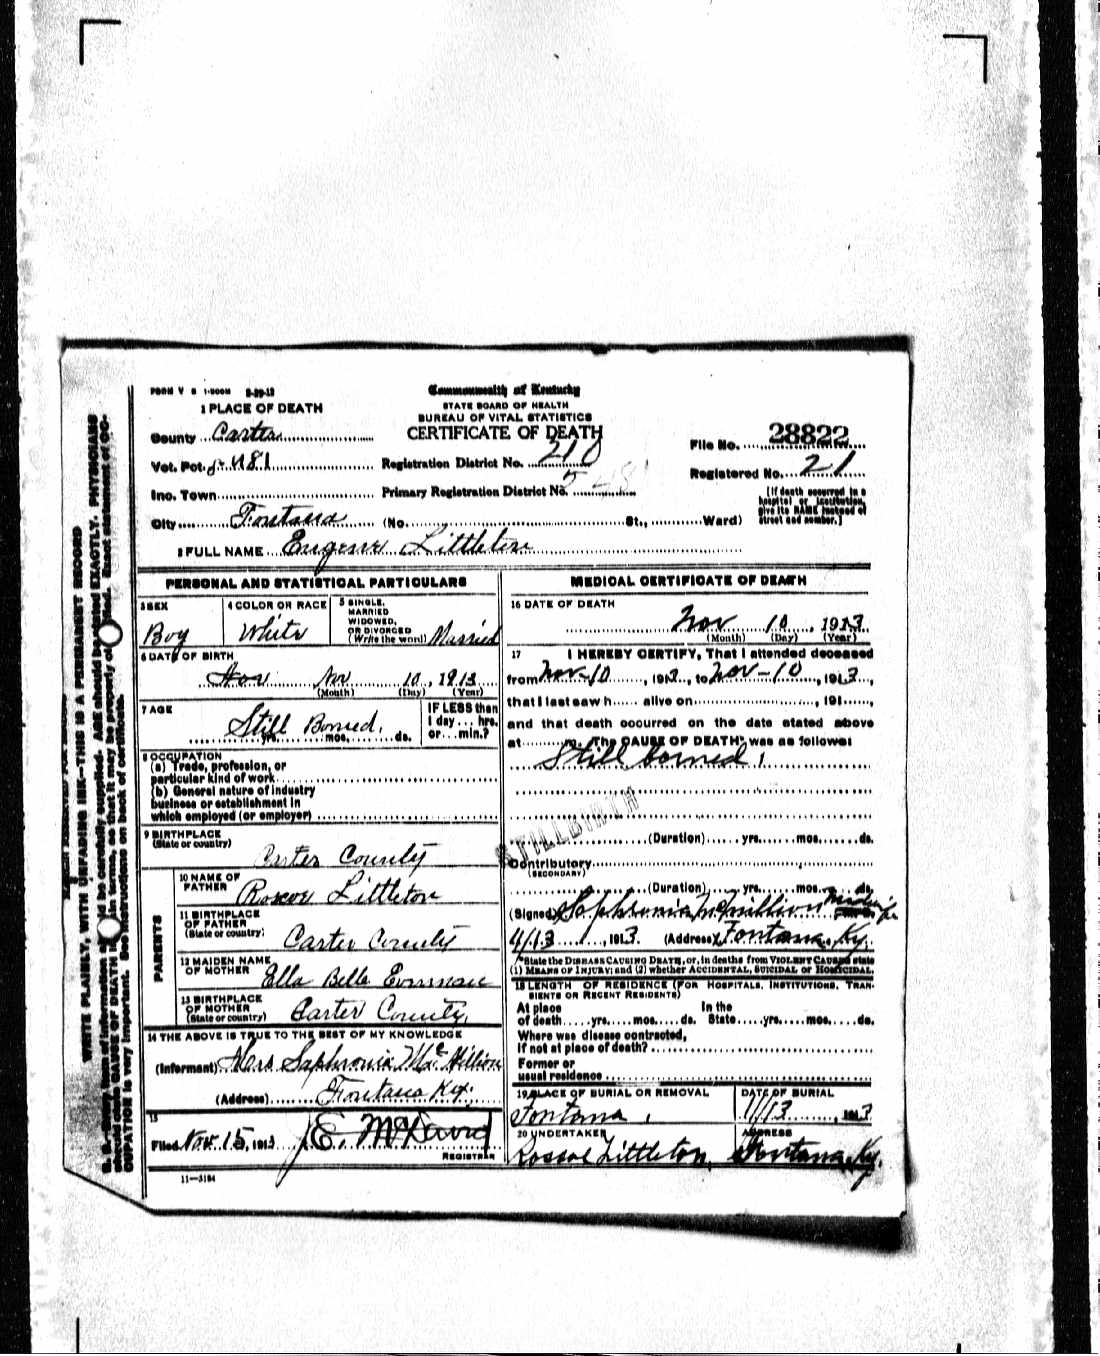 FORM V S 1-500M 9-29-13
Commonwealth of Kentucky
STATE BOARD OF HEALTH
BUREAU OF VITAL STATISTICS
CERTIFICATE OF DEATH
1 PLACE OF DEATH
County Carter
Vot. Pct. 481
Ino. Town
City Fontana (No. St., Ward)
Registration District No. 210
Primary Registration District No. 5
File No. 28822
Registered No. 21
[If death occurred in a
hospital or institution,
give its NAME instead of
street and number.]
2 FULL NAME Eugene Littleton
PERSONAL AND STATISTICAL PARTICULARS
3 SEX
Boy
4 COLOR OR RACE
White
5 SINGLE,
MARRIED
WIDOWED,
OR DIVORCED
(Write the word) Married
6 DATE OF BIRTH
Nov 10, 1913
(Month) (Day) (Year)
7 AGE
Still Borned.
yrs. mos. ds.
IF LESS than
1 day ... hrs.
or ... min.?
8 OCCUPATION
(a) Trade, profession, or
particular kind of work
(b) General nature of industry
business or establishment in
which employed (or employer)
9 BIRTHPLACE
(State or country)
Carter County
PARENTS
10 NAME OF
FATHER
Roscoe Littleton
11 BIRTHPLACE
OF FATHER
(State or country)
Carter County
12 MAIDEN NAME
OF MOTHER
Ella Belle
13 BIRTHPLACE
OF MOTHER
(State or country)
Carter County
14 THE ABOVE IS TRUE TO THE BEST OF MY KNOWLEDGE
(Informant) Mrs Saphronia McMillion
(Address) Fontana Ky.
15
Filed Nov. 15, 1913 J. E. McDavid
REGISTRAR
11-3184
MEDICAL CERTIFICATE OF DEATH
16 DATE OF DEATH
Nov 10, 1913
(Month) (Day) (Year)
17 I HEREBY CERTIFY, That I attended deceased
from Nov-10, 1913, to Nov-10, 1913,
that I last saw h alive on , 191 ,
and that death occurred on the date stated above
at m. The CAUSE OF DEATH* was as follows:
Still borned.
STILLBIRTH
(Duration) yrs. mos. ds.
Contributory
(SECONDARY)
(Duration) yrs. mos. ds.
(Signed) Saphronia McMillion Midwife
11/13, 1913. (Address) Fontana, Ky.
*State the DISEASE CAUSING DEATH, or, in deaths from VIOLENT CAUSES state
(1) MEANS OF INJURY; and (2) whether ACCIDENTAL, SUICIDAL or HOMICIDAL.
18 LENGTH OF RESIDENCE (FOR HOSPITALS, INSTITUTIONS, TRAN-
SIENTS OR RECENT RESIDENTS)
At place In the
of death yrs. mos. ds. State yrs. mos. ds.
Where was disease contracted,
if not at place of death?
Former or
usual residence
19 PLACE OF BURIAL OR REMOVAL
Fontana.
DATE OF BURIAL
11/13, 1913
20 UNDERTAKER
Roscoe Littleton,
ADDRESS
Fontana, Ky.
WRITE PLAINLY, WITH UNFADING INK—THIS IS A PERMANENT RECORD